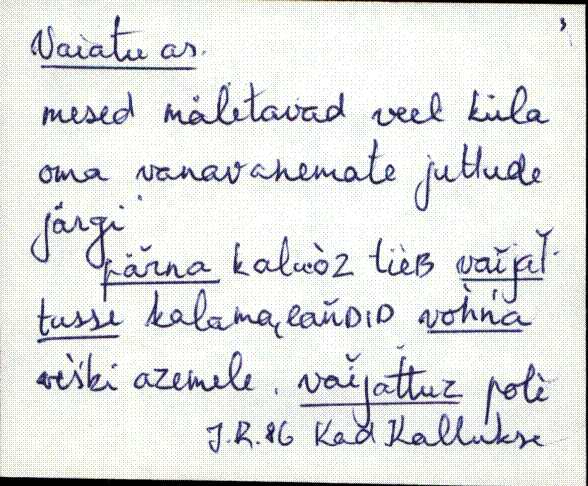 Vaiatu as.
mesed mäletavad veel küla
oma vanavanemate juttude
järgi
pǟrna kaluòz tìèB vaĭjať-
tusse kalama, eäñDiD vòhńa
vèški azemele. vaĭjaťtuz polè
J.R. 86 Kad Kallukse